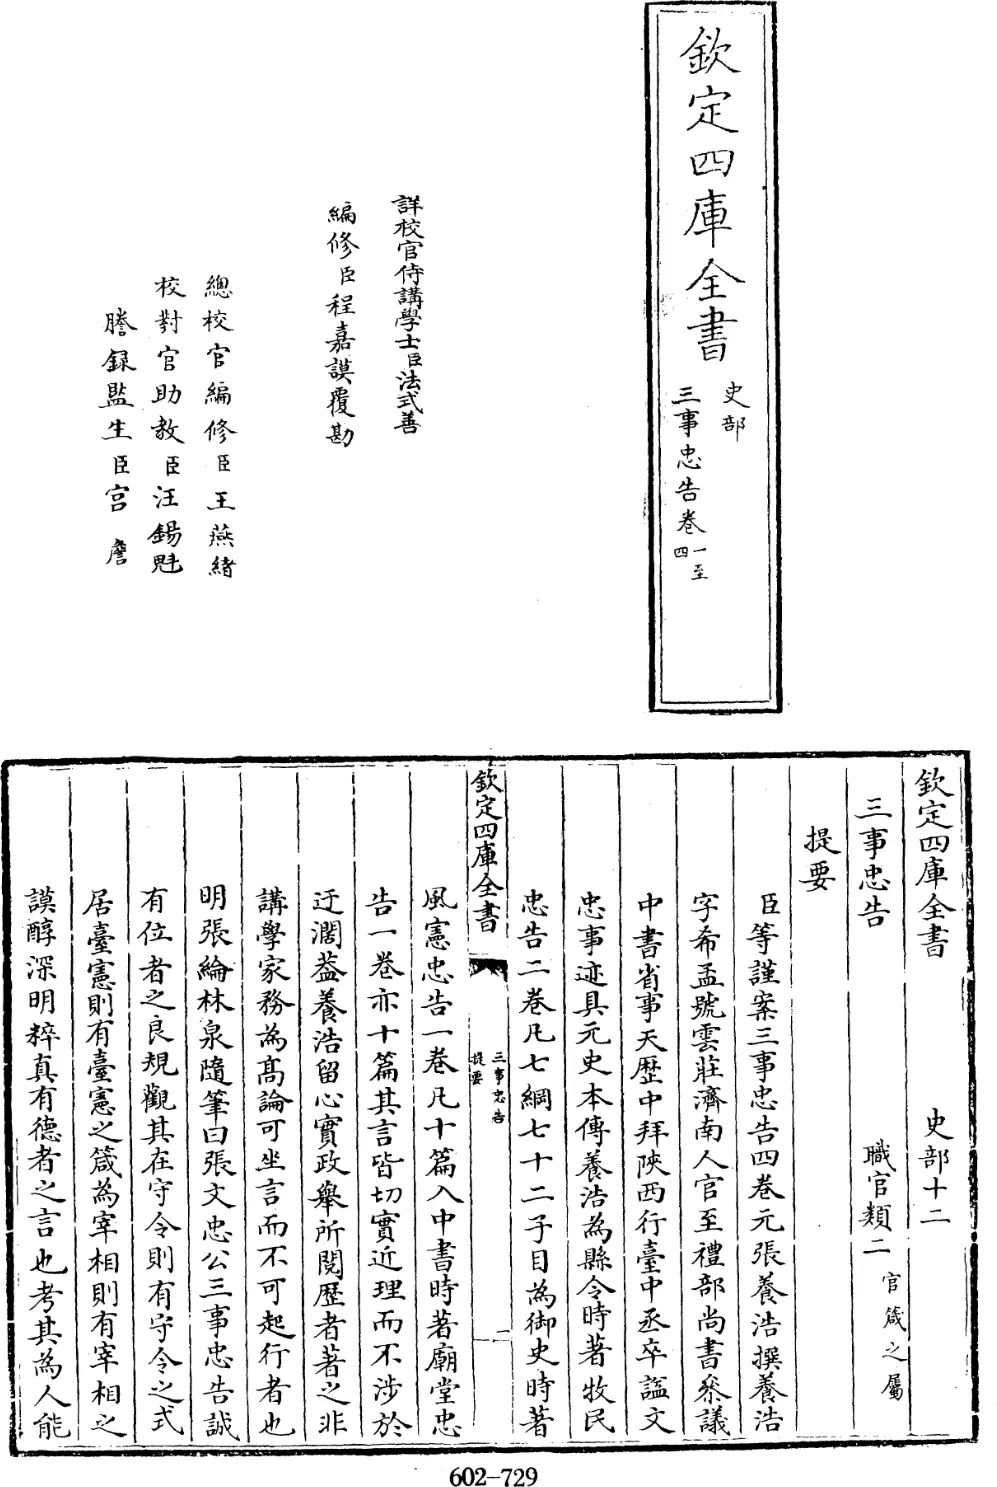 欽定四庫全書
史部
三事忠告卷一至四
詳校官侍講學士臣法式善
編修臣程嘉謨覆勘
總校官編修臣王燕緒
校對官助教臣汪錫魁
謄録監生臣宫詹
欽定四庫全書
史部十二
三事忠告
職官類二官箴之屬
提要
臣等謹案三事忠告四卷元張養浩撰養浩
字希孟號雲莊濟南人官至禮部尚書叅議
中書省事天歴中拜陝西行臺中丞卒諡文
忠事迹具元史本傳養浩為縣令時著牧民
忠告二卷凡七綱七十二子目為御史時著
欽定四庫全書
三事忠告
提要
一
風憲忠告一卷凡十篇入中書時著廟堂忠
告一卷亦十篇其言皆切實近理而不涉於
迂濶葢養浩留心實政舉所閱歴者著之非
講學家務為髙論可坐言而不可起行者也
明張綸林泉隨筆曰張文忠公三事忠告誠
有位者之良規觀其在守令則有守令之式
居臺憲則有臺憲之箴為宰相則有宰相之
謨醇深明粹真有德者之言也考其為人能
602-729